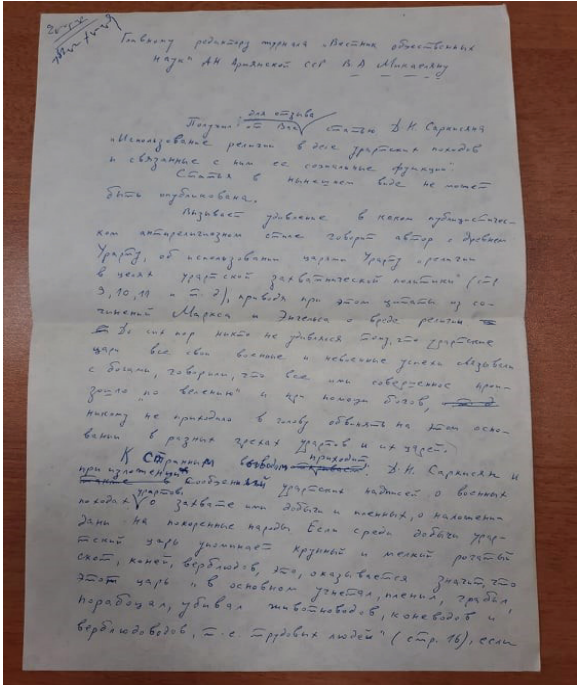 Главному редактору журнала „Вестник общественных
наук" АН Армянской ССР В.А. Микаеляну
для отзыва
Получил от Вас статью Д.Н. Саркисяна
„Использование религии в деле урартских походов
и связанные с ним ее социальные функции".
Статья в нынешнем виде не может
быть опубликована.
Вызывает удивление в каком публицистичес-
ком антирелигиозном стиле говорит автор о древнем
Урарту, об использовании царями Урарту „религии
в целях урартской захватнической политики" (стр
9, 10, 11 и т.д), приводя при этом цитаты из со-
чинений Маркса и Энгельса о вреде религии
До сих пор никто не удивлялся тому, что урартские
цари все свои военные и невоенные успехи связывали
с богами, говорили, что все ими совершенное прои-
зошло „по велению" и при помощи богов,
никому не приходило в голову обвинять на этом осно-
вании в разных грехах урартов и их царей.
К странным выводам приходит Д.Н. Саркисян и
при изложении сообщений урартских надписей о военных
походах урартов
о захвате ими добычи и пленных, о наложении
дани на покоренные народы. Если среди добычи урар-
тский царь упоминает крупный и мелкий рогатый
скот, коней, верблюдов, это, оказывается значит, что
этот царь „в основном угнетал, пленил, грабил,
порабощал, убивал животноводов, коневодов и
верблюдоводов, т.е. трудовых людей" (стр. 16), если